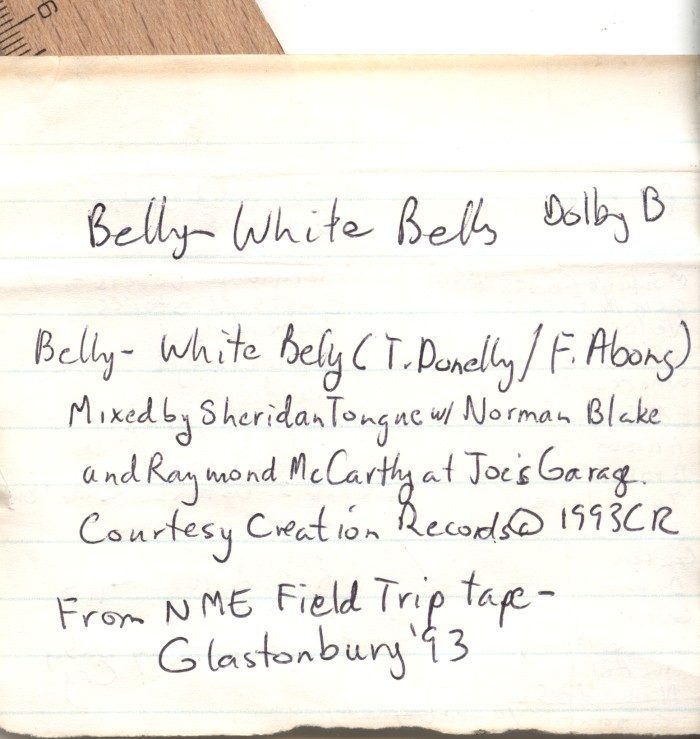 6
Belly- White Belly Dolby B
Belly- White Belly (T. Donelly / F. Abong)
Mixed by Sheridan Tongue w/ Norman Blake
and Raymond McCarthy at Joe's Garage.
Courtesy Creation Records © 1993 CR
From NME Field Trip tape -
Glastonbury '93